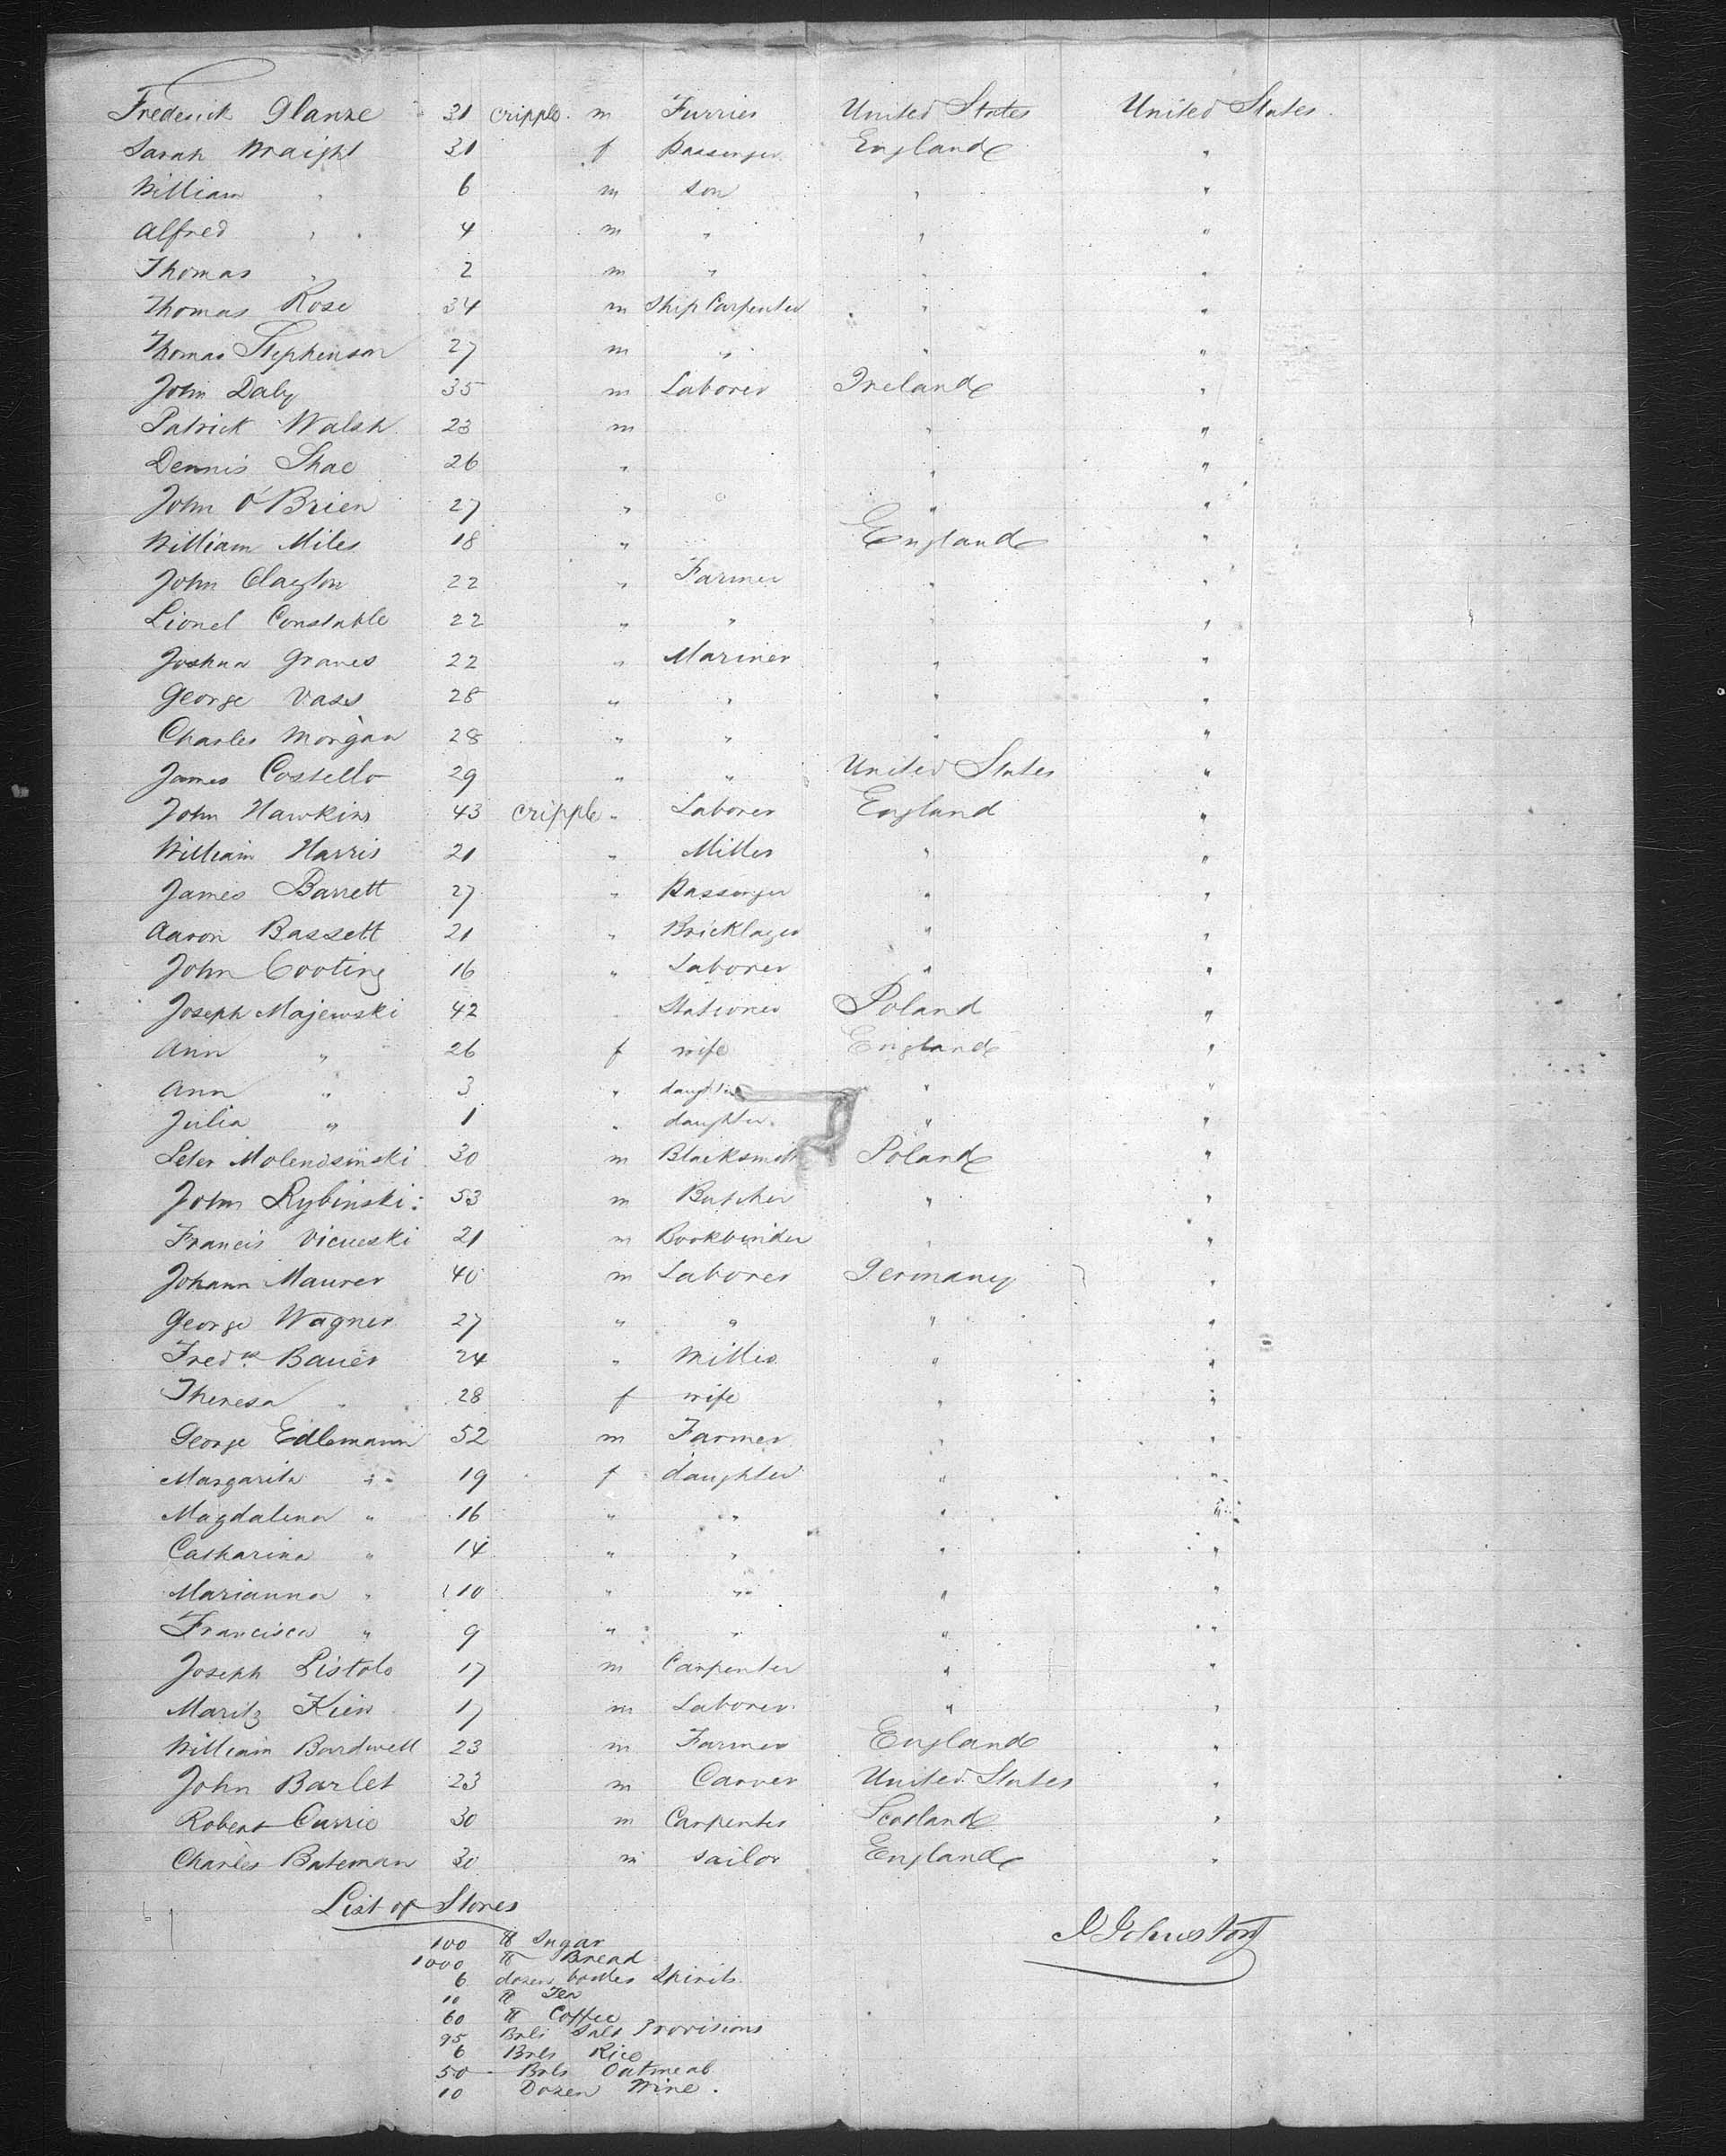 Frederick Glanze 31 cripple m Furrier United States United States
Sarah Wraight 31 f Passenger England "
William " 6 m son " "
Alfred " 4 m " " "
Thomas " 2 m " " "
Thomas Rose 34 m Ship Carpenter " "
Thomas Stephenson 27 m " " "
John Daly 35 m Laborer Ireland "
Patrick Walsh 23 m " "
Dennis Shae 26 " " "
John O'Brien 27 " " "
William Miles 18 " England "
John Clayton 22 " Farmer " "
Lionel Constable 22 " " " "
Joshua Graves 22 " Mariner " "
George Vass 28 " " " "
Charles Morgan 28 " " " "
James Costello 29 " " United States "
John Hawkins 43 cripple " Laborer England "
William Harris 21 " Miller " "
James Barrett 27 " Passenger " "
Aaron Bassett 21 " Bricklayer " "
John Cooting 16 " Laborer " "
Joseph Majewski 42 " Stationer Poland "
Ann " 26 f wife England "
Ann " 3 " daughter " "
Julia " 1 " daughter " "
Peter Molendsinski 30 m Blacksmith Poland "
John Rybinski 53 m Butcher " "
Francis 21 m Bookbinder " "
Johann Maurer 40 m Laborer Germany "
George Wagner 27 " " " "
Fredck Bauer 24 " Miller " "
Theresa " 28 f wife " "
George Edlemann 52 m Farmer " "
Margarita " 19 f daughter " "
Magdalena " 16 " " " "
Catharina " 14 " " " "
Marianna " 10 " " " "
Francisca " 9 " " " "
Joseph Pistolo 17 m Carpenter " "
Moritz Kien 17 m Laborer " "
William Bardwell 23 m Farmer England "
John Barlet 23 m Carver United States "
Robert Currie 30 m Carpenter Scotland "
Charles Bateman 30 m Sailor England "
List of Stores
J Johnston
100 lb Sugar
1000 lb Bread
6 dozen bottles Spirits
10 lb Tea
60 lb Coffee
95 Brls Salt Provisions
6 Brls Rice
50 Brls Oatmeal
10 Dozen Wine.